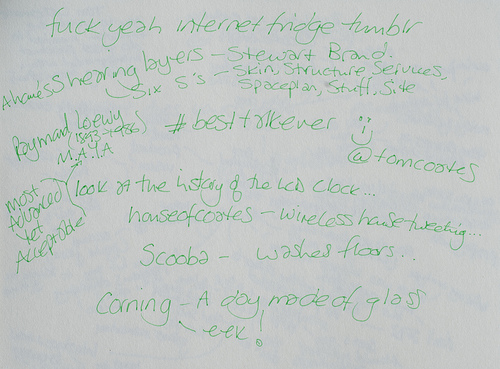 fuck yeah internet fridge tumblr
A home's Shearing layers - Stewart Brand.
Six S's - Skin, Structure, Services,
Spaceplan, Stuff, Site
Raymond Loewy
(1893-1986)
M.A.Y.A
#besttalkever :)
@tomcoates
most
Advanced
Yet
Acceptable
look at the history of the LCD clock...
houseofcoates - wireless house tweeting...
Scooba - washes floors..
Corning - A day made of glass
eek!